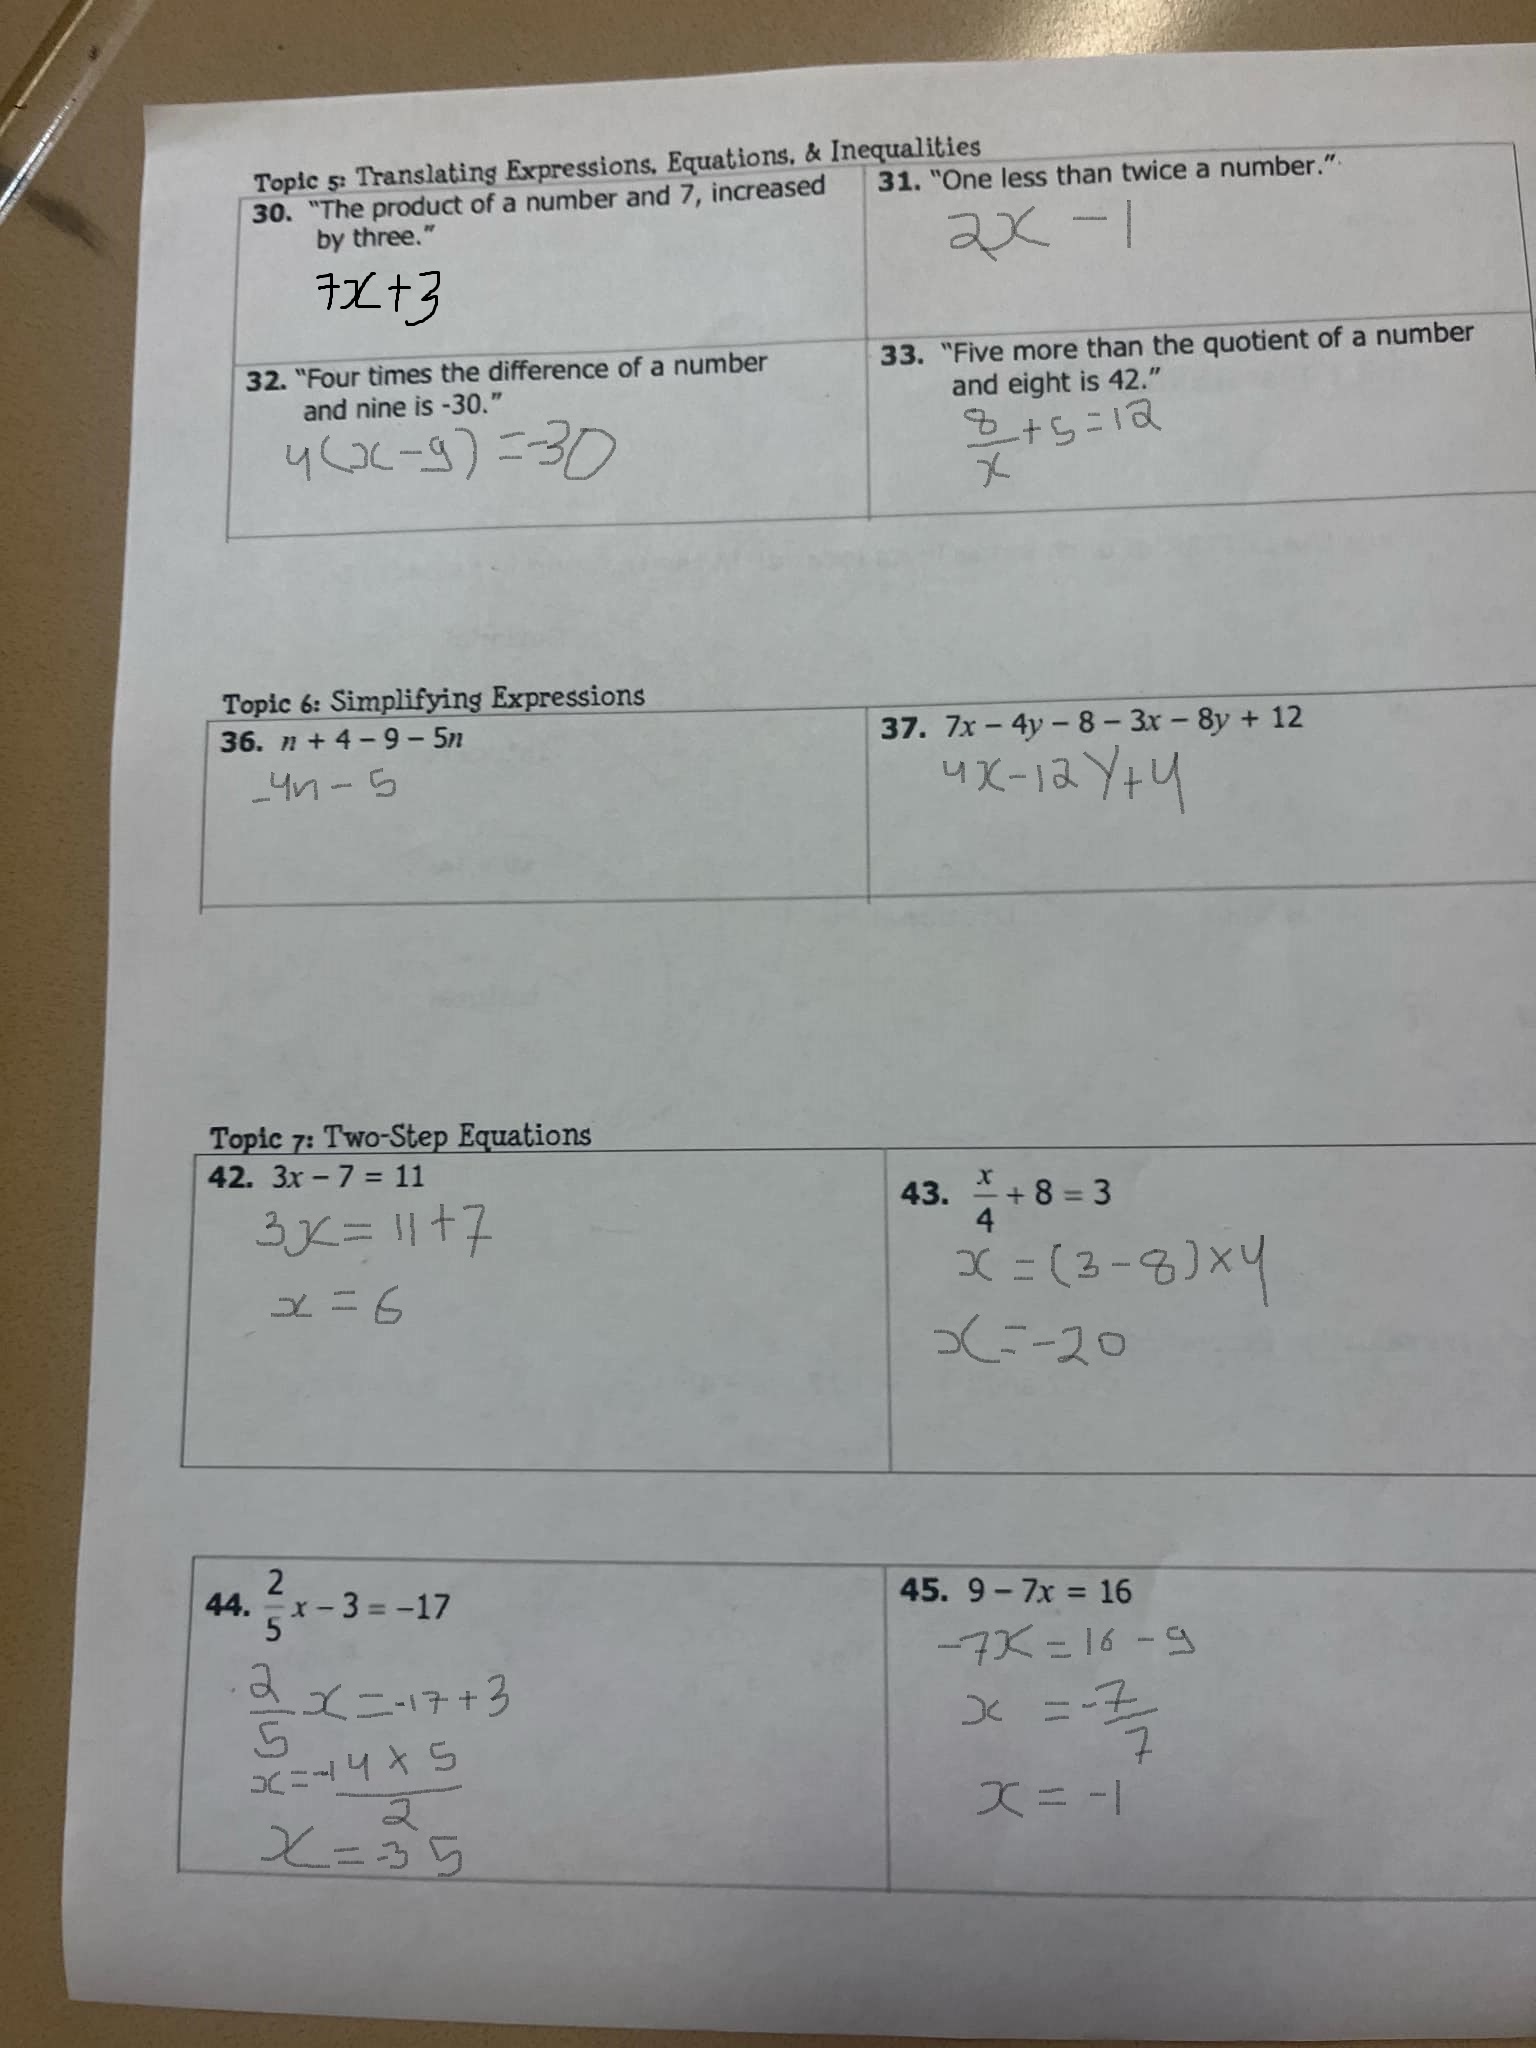 Topic 5: Translating Expressions, Equations, & Inequalities
30. "The product of a number and 7, increased
by three."
7x+3
31. "One less than twice a number."
2x - 1
32. "Four times the difference of a number
and nine is -30."
4(x-9) = -30
33. "Five more than the quotient of a number
and eight is 42."
8/x + 5 = 12
Topic 6: Simplifying Expressions
36. n + 4 – 9 – 5n
-4n - 5
37. 7x – 4y – 8 – 3x – 8y + 12
4x - 12y + 4
Topic 7: Two-Step Equations
42. 3x – 7 = 11
3x = 11+7
x = 6
43. x/4 + 8 = 3
x = (3-8)×4
x = -20
44. 2/5 x – 3 = –17
2/5 x = -17+3
x = -14 × 5/2
x = -35
45. 9 – 7x = 16
-7x = 16 - 9
x = -7/7
x = -1